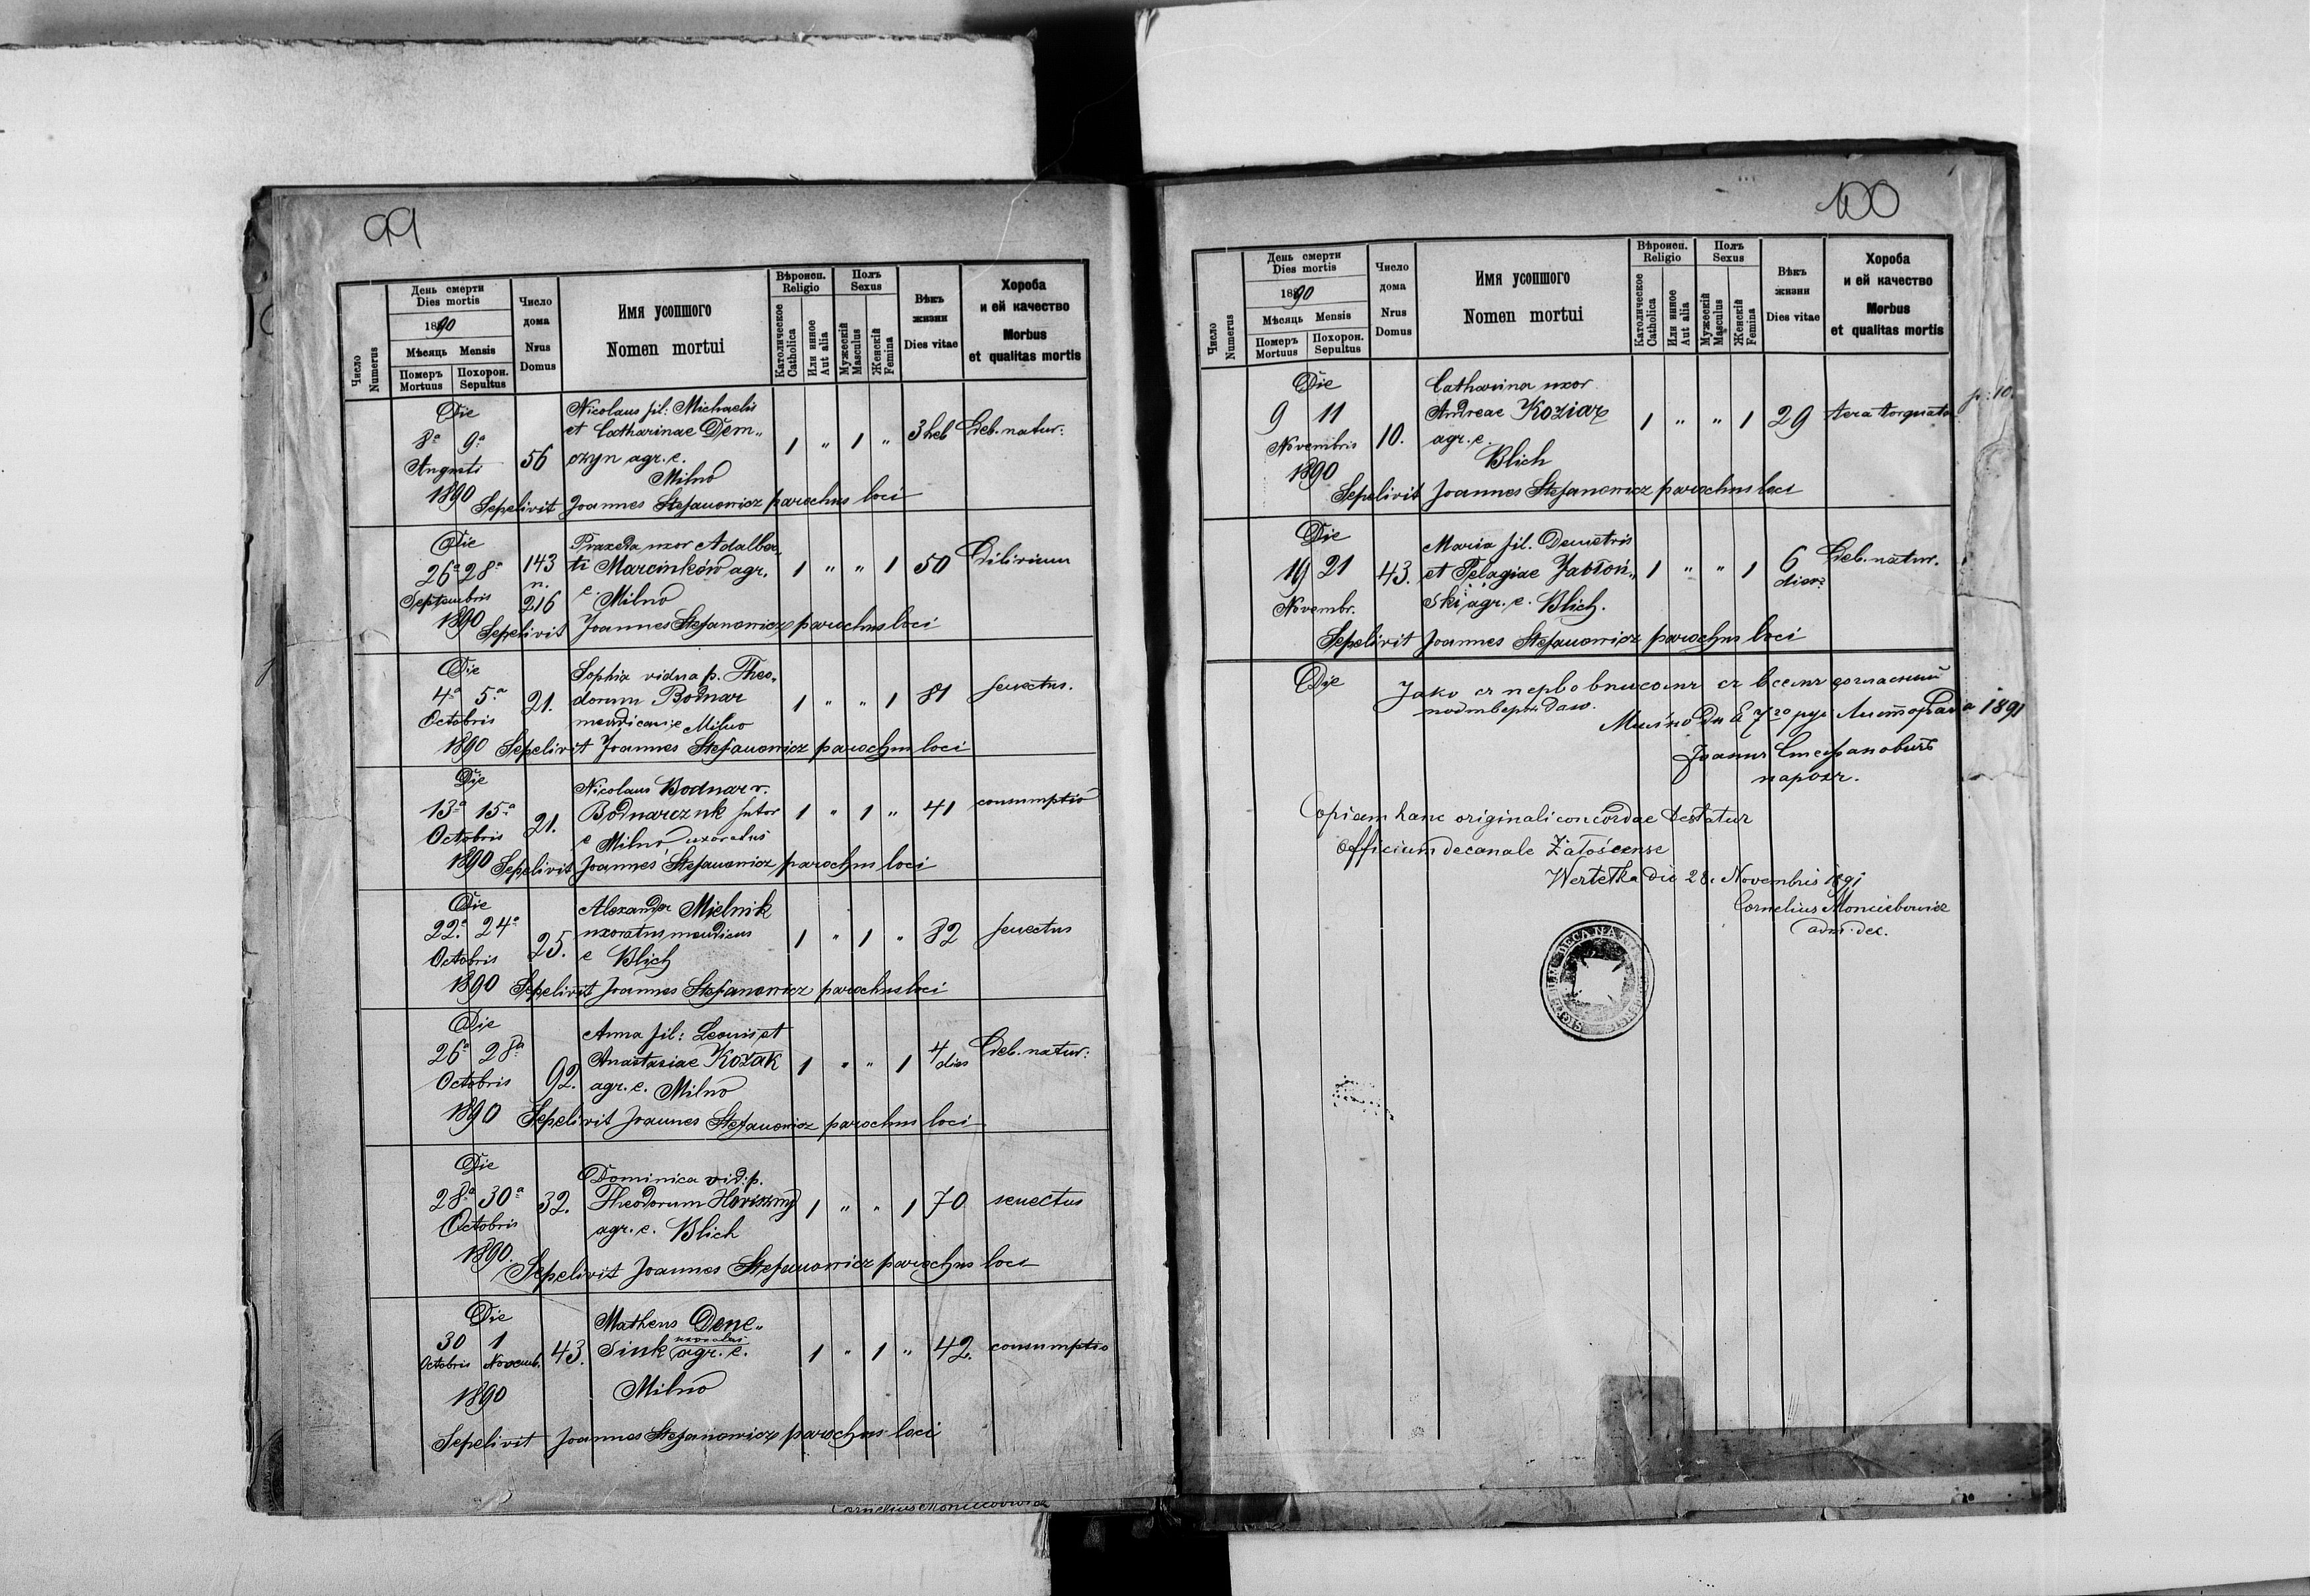 99
Число
Numerus
День смерти
Dies mortis
1890
Мѣсяць Mensis
Померъ
Mortuus
Похорон.
Sepultus
Число
дома
Nrus
Domus
Имя усопшого
Nomen mortui
Вѣроисп.
Religio
Католическое
Catholica
Или инное
Aut alia
Полъ
Sexus
Мужескій
Masculus
Женскій
Femina
Вѣкъ
жизни
Dies vitae
Хороба
и ей качество
Morbus
et qualitas mortis
Die
8ª 9ª
Augusti
1890
56
Nicolaus fil: Michaelis
et Catharinae Dem„
czyn agr. e.
Milno
1 „ 1 „ 3 heb Deb. natur:
Sepelivit Joannes Stefanowicz parochus loci
Die
26ª 28ª
Septembris
1890
143
n.
216
Praxeda uxor Adalber„
ti Marcinków agr.
e. Milno
1 „ „ 1 50 Dilirium
Sepelivit Joannes Stefanowicz parochus loci
Die
4ª 5ª
Octobris
1890
21.
Sophia vidua p. Theo„
dorum Bodnar
mendicans e Milno
1 „ „ 1 81 senectus.
Sepelivit Joannes Stefanowicz parochus loci
Die
13ª 15ª
Octobris
1890
21.
Nicolaus Bodnar v.
Bodnarczuk sutor
e Milno uxoratus
1 „ 1 „ 41 consumptio
Sepelivit Joannes Stefanowicz parochus loci
Die
22ª 24ª
Octobris
1890
25.
Alexander Mielnik
uxoratus mendicus
e Blich
1 „ 1 „ 82 senectus
Sepelivit Joannes Stefanowicz parochus loci
Die
26ª 28ª
Octobris
1890
92.
Anna fil: Leonis et
Anastasiae Kozak
agr. e. Milno
1 „ „ 1 4 dies Deb. natur:
Sepelivit Joannes Stefanowicz parochus loci
Die
28ª 30ª
Octobris
1890.
32.
Dominica vid: p.
Theodorum
agr. e. Blich
1 „ „ 1 70 senectus
Sepelivit Joannes Stefanowicz parochus loci
Die
30 1
Octobris Novemb.
1890
43.
Matheus Dene„
siuk uxoratus agr. e.
Milno
1 „ 1 „ 42. consumptio
Sepelivit Joannes Stefanowicz parochus loci
100
Число
Numerus
День смерти
Dies mortis
1890
Мѣсяць Mensis
Померъ
Mortuus
Похорон.
Sepultus
Число
дома
Nrus
Domus
Имя усопшого
Nomen mortui
Вѣроисп.
Religio
Католическое
Catholica
Или инное
Aut alia
Полъ
Sexus
Мужескій
Masculus
Женскій
Femina
Вѣкъ
жизни
Dies vitae
Хороба
и ей качество
Morbus
et qualitas mortis
Die
9 11
Novembris
1890
10.
Catharina uxor
Andreae Koziar
agr. e.
Blich
1 „ „ 1 29
Sepelivit Joannes Stefanowicz parochus loci
Die
19 21
Novembr.
43.
Maria fil. Demetris
et Pelagiae Jabłoń„
ski agr. e. Blich.
1 „ „ 1 6 Deb. natur.
Sepelivit Joannes Stefanowicz parochus loci
Die
Яко съ первовписомъ съ всемъ согласный
подтверждаю.
Мильно Дня Листопада 1891
Іоаннъ Стефановичъ
парохъ.
Copiam hanc originali concordae testatur
Officium decanale Załoścense
Wertełka die 28. Novembris 1891
Cornelius Moncibowicz
adm. dec.